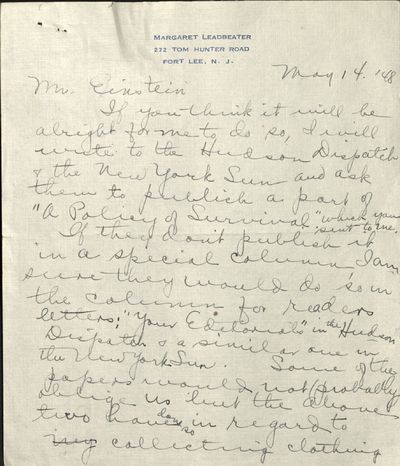 MARGARET LEADBEATER
272 TOM HUNTER ROAD
FORT LEE, N. J.
May 14. '48
Mr. Einstein
If you think it will be
alright for me to do so, I will
write to the Hudson Dispatch
& the New York Sun and ask
them to publish a part of
"A Policy of Survival" which you
sent to me.
If they don't publish it
in a special column I am
sure they would do so in
the column for readers
letters; "Your Editorials" in the Hudson
Dispatch & a similar one in
the New York Sun. Some of the
papers would not probably
oblige us but the above
two have done so in regard to
my collecting clothing